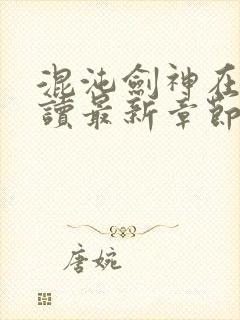 混沌劍神在
讀最新章節
唐婉